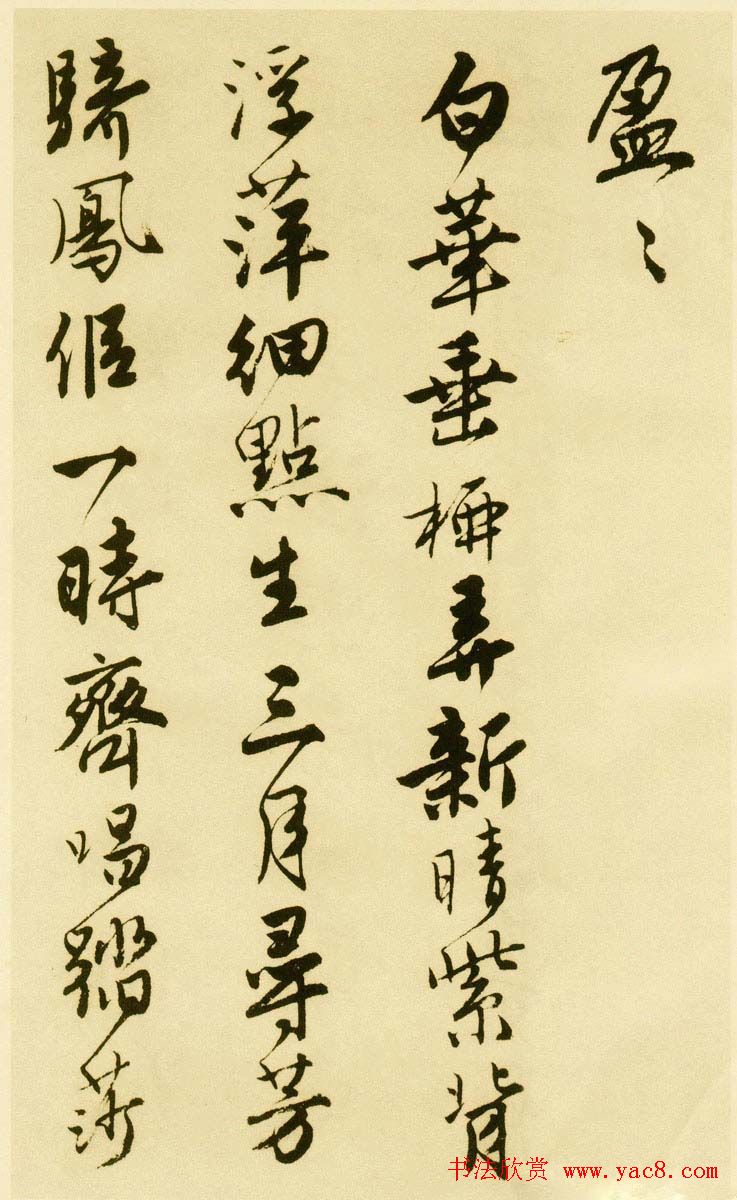 盈〻
白華垂弄新晴紫背
浮萍細點生三月尋芳
騎鳳侶一時齊唱踏莎
书法欣赏 www.yac8.com